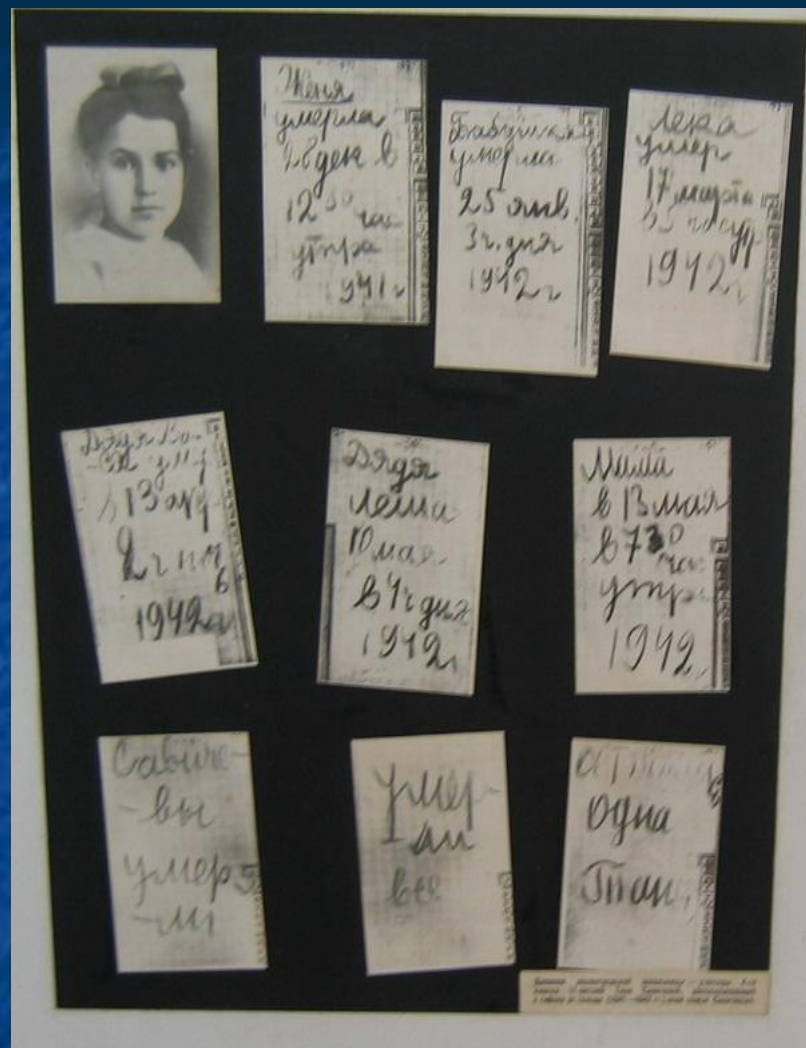 Женя
умерла
28 дек в
12 30 час
утра
1941 г
Бабушка
умерла
25 янв.
3 ч. дня
1942 г
Лека
умер
17 марта
в 5 час утр
1942 г
Дядя Ва-
ся ум
в 13 апр
2 ч ноч
1942 г
Дядя
Леша
10 мая
в 4 ч дня
1942 г
Мама
в 13 мая
в 7 30
час
утра
1942 г
Савиче-
-вы
умер
-ли
умер-
-ли
все
одна
Таня